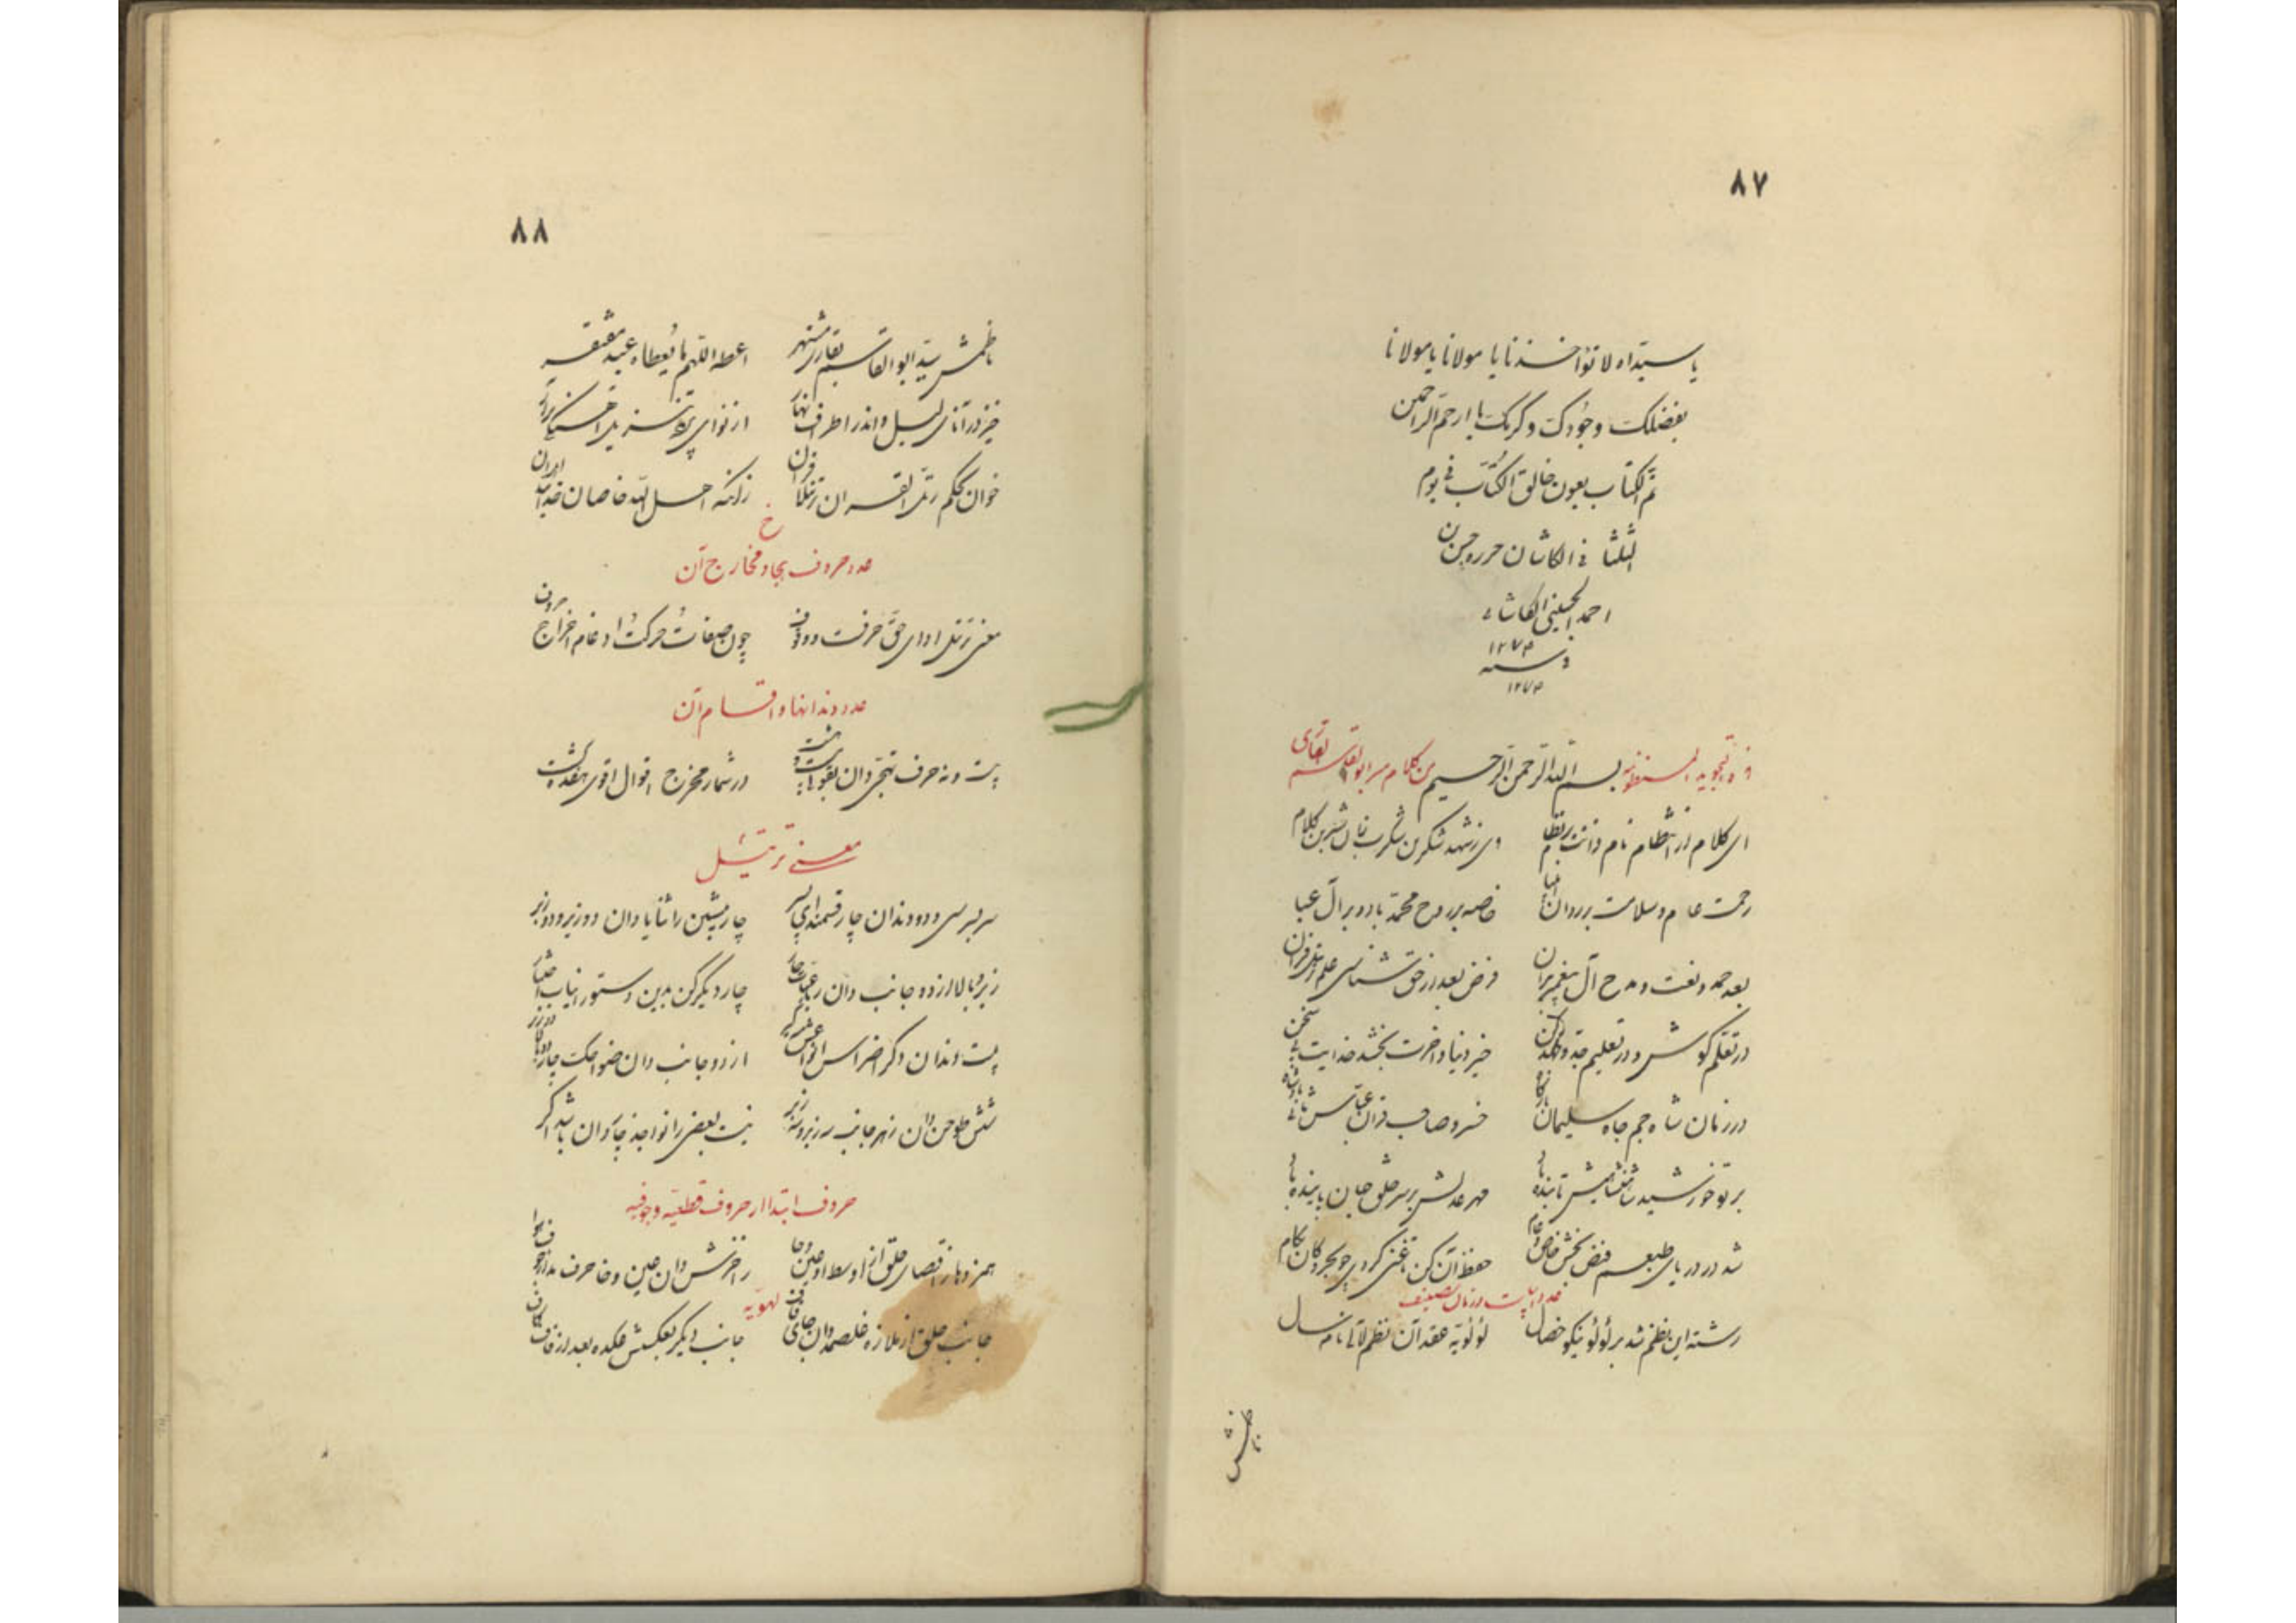 ٨٧
یا سیداه لا تؤاخذنا یا مولانا یا مولانا
بفضلک وجودک وکرمک یا ارحم الراحمین
تم الکتاب بعون خالق الکتاب فی یوم
الثلثا فی الکاشان حرره حسن بن
احمد الحسینی الکاشانی
١٢٧٣
فی سنه
١٢٧٣
فی تجوید المنظومه بسم الله الرحمن الرحیم من کلام میر ابو القاسم القاری
ای کلام از انتظام نام ذاتت با نظام وی ز شهد شکرین شکرت زبان شیرین کلام
رحمت عام و سلامت بر روان انبیا خاصه بر روح محمد باد و بر آل عبا
بعد حمد و نعت و مدح آل پیغمبر بدان فرض بعد از حق شناسی علم ترتیل قران
در تعلم کوش و در تعلیم جد و جهد کن خیر دنیا و اخرت بخشد خدایت بی سخن
در زمان شاه جم جاه سلیمان بارگاه خسرو صاحب قران عباس شاه
پرتو خورشید شاهنشاهیش تابنده باد مهر عدلش بر سر خلق جهان پاینده باد
شد در دریای طبعم فیض بخش خاص و عام حفظ آن کن تا غنی گردی چو بحر و کان بکام
عدد ابیات و زمان تصنیف
رشته این نظم شد پر لؤلؤ نیکو خصال لؤلؤیه عقد آن نظم لآلی نام سال
ناظمش
٨٨
ناظمش سید ابو القاسم بقاری مشتهر اعطه اللهم ما یعطاه عبد مفتقر
خیز در آنای لیل و اندر اطراف نهار از نوای تنزیل
خوان بحکم رتل القران ترتیلا قران زانکه اهل الله خاصان خدایند
عدد حروف تهجا و مخارج آن
معنی ترتیل ادای حق حرفست و وقوف چون صفات و حرکت و ادغام و اخراج حروف
عدد دندانها و اقسام آن
بیست و نه حرف تهجی دان بقولی بیست و هشت در شمار مخرج اقوال اقوی هفده گشت
معنی ترتیل
سر بسر سی و دو دندان چار قسمند ای پسر چار پیشین را ثنایا دان دو زیر و دو زبر
زیر و بالا از دو جانب دان رباعیات چار چار دیگر کن بدین دستور انیاب اختیار
بیست دندان دگر اضراس از دو جانب دان ضواحک چار
شش طواحن دان ز هر جانب سه زیر و سه زبر نیست بعضی را نواجذ چار دان باشد اگر
حروف ابتدا از حروف قطعیه و جوفیه
همزه و ها ز اقصای حلق از اوسط او عین و حا ز اخرش دان غین و خا حرف مد از جوف هوا
لهویه
جانب حلق از ملازه خلصه دان جای قاف جانب دیگر بعکسش عکده بعد از قاف کاف